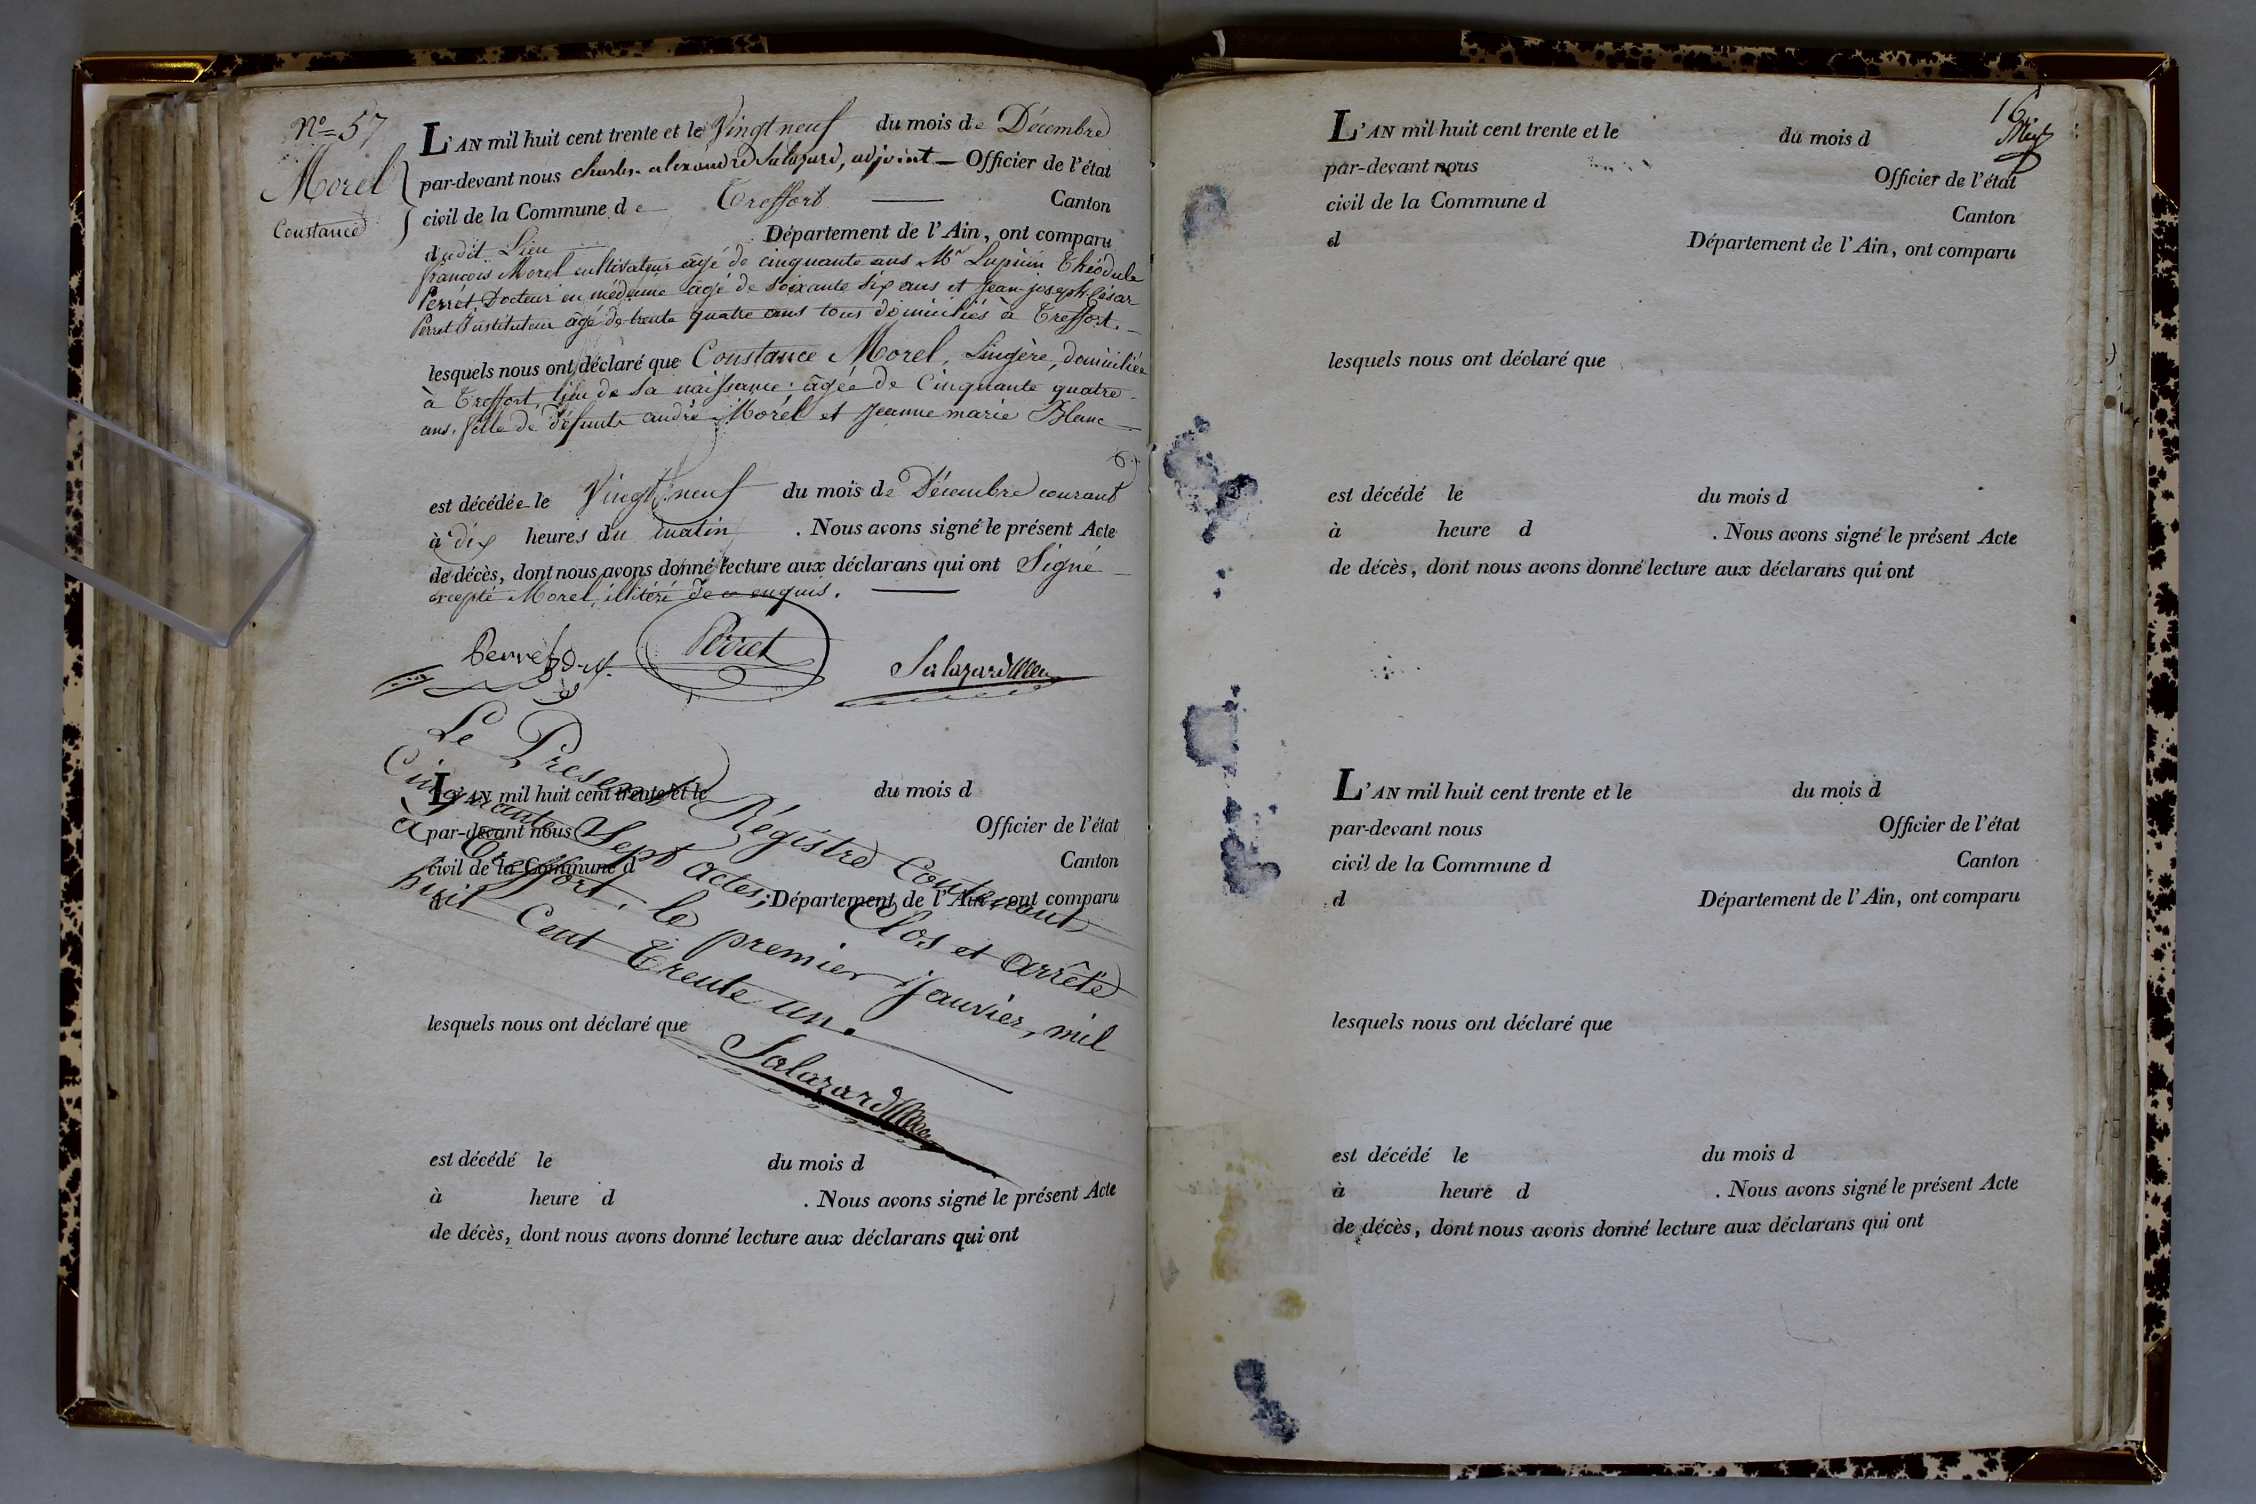 N° 57
Morel
Constance
L'AN mil huit cent trente et le Vingt neuf du mois de Décembre
par-devant nous charles alexandre Salazard, adjoint — Officier de l'état
civil de la Commune de Treffort — Canton
dudit Lieu Département de l'Ain, ont comparu
françois Morel cultivateur âgé de cinquante ans Mr Lupicin Théodule
Perret Docteur en médecine âgé de soixante six ans et Jean joseph César
Perret Instituteur âgé de trente quatre ans tous domiciliés à Treffort. —
lesquels nous ont déclaré que Constance Morel, Lingère, domiciliée
à Treffort, lieu de sa naissance; âgée de Cinquante quatre
ans, fille de défunts andré Morel et Jeanne marie Blanc —
est décédée le Vingt neuf du mois de Décembre courant
à dix heures du matin . Nous avons signé le présent Acte
de décès, dont nous avons donné lecture aux déclarans qui ont Signé —
excepté Morel, illitéré de ce enquis. —
Perret D. M. Perret Salazard
Le Present Régistre Contenant
Cinquante Sept actes, Clos et arrêté
à Treffort, le premier Janvier, mil
huit Cent Trente un.
Salazard
L'AN mil huit cent trente et le du mois d
par-devant nous Officier de l'état
civil de la Commune d Canton
d Département de l'Ain, ont comparu
lesquels nous ont déclaré que
est décédé le du mois d
à heure d . Nous avons signé le présent Acte
de décès, dont nous avons donné lecture aux déclarans qui ont
16
L'AN mil huit cent trente et le du mois d
par-devant nous Officier de l'état
civil de la Commune d Canton
d Département de l'Ain, ont comparu
lesquels nous ont déclaré que
est décédé le du mois d
à heure d . Nous avons signé le présent Acte
de décès, dont nous avons donné lecture aux déclarans qui ont
L'AN mil huit cent trente et le du mois d
par-devant nous Officier de l'état
civil de la Commune d Canton
d Département de l'Ain, ont comparu
lesquels nous ont déclaré que
est décédé le du mois d
à heure d . Nous avons signé le présent Acte
de décès, dont nous avons donné lecture aux déclarans qui ont